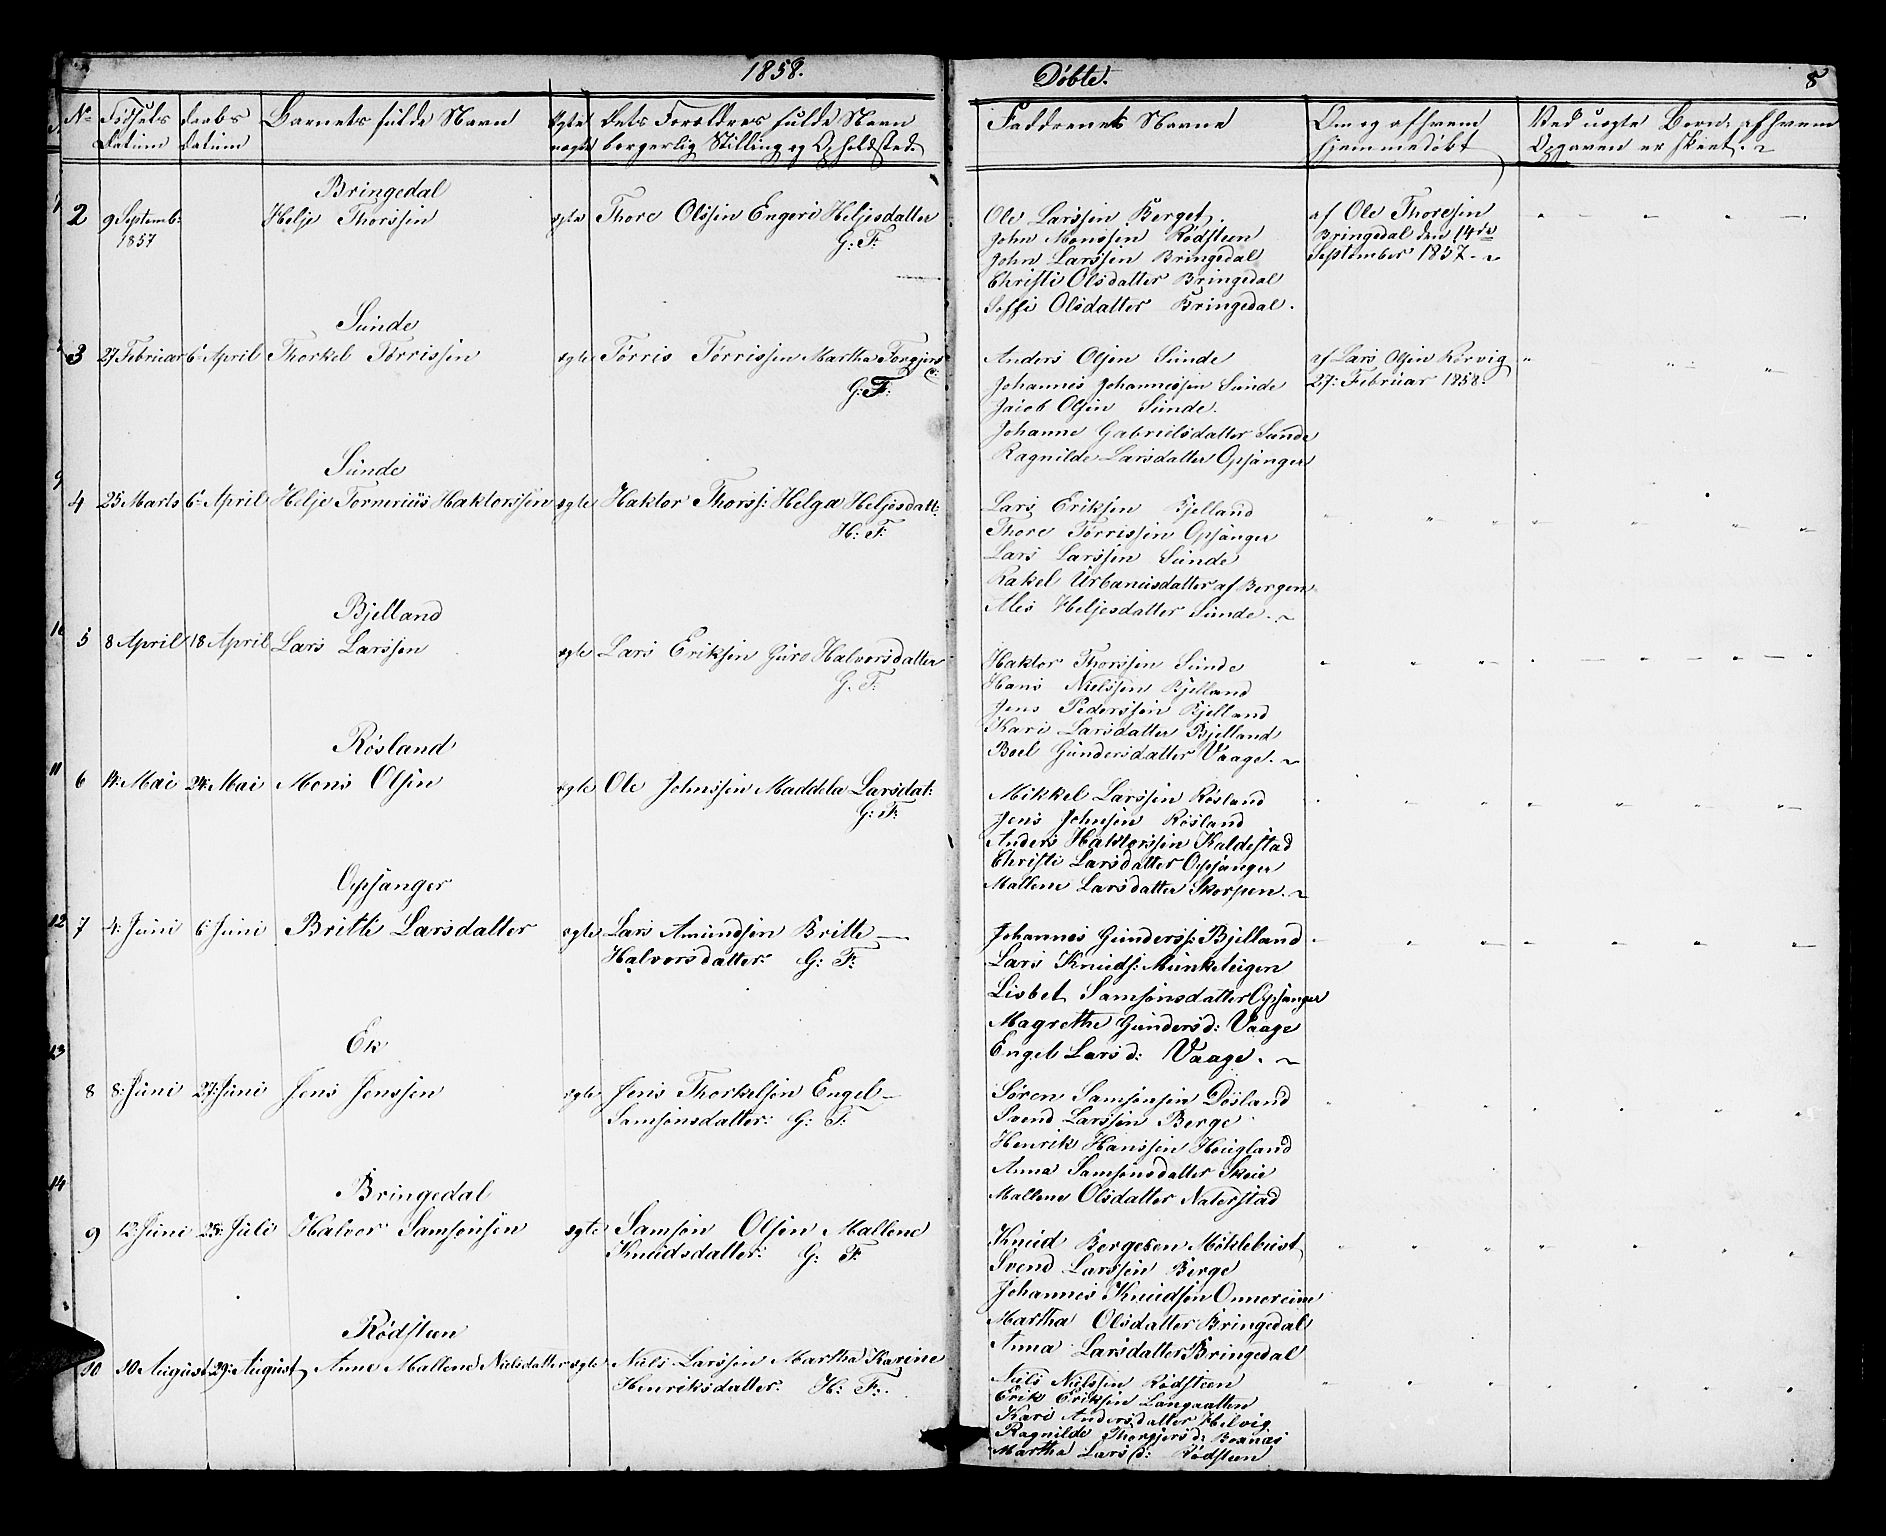 1858.
Døbte.
8
No Fødsels Datum
Daabs Datum
Barnets fulde Navn
Ægte uægte
Dets Forældres fulde Navn borgerlig Stilling og Opholdsted
Faddrenes Navne
Om og af hvem hjemmedøbt
Ved uægte Børn: af hvem Opgaven er skeet.
Bringedal
2 9 Septemb: 1857 Helje Thorssen ægte Thore Olssen Engeri Heljesdatter
G: F:
Ole Larssen Berget.
John Monssen Rødsteen
John Larssen Bringedal
Christi Olsdatter Bringedal
Soffi Olsdatter Bringedal.
af Ole Thoresen
Bringedal den 14de
September 1857.
Sunde
3 27 Februar 6 April Thorkel Tørrissen ægte Tørris Tørrissen Martha Torgjers
G: F:
Anders Olsen Sunde
Johannes Johannessen Sunde
Jacob Olsen Sunde.
Johanne Gabrielsdatter Sunde
Ragnilde Larsdatter Opsanger
af Lars Olsen Rørvig
27: Februar 1858.
Sunde
4 25 Marts 6 April Helje Tornerius Haktorssen ægte Haktor Thorss: Helga Heljesdatt:
H: F:
Lars Eriksen Bjelland
Thore Tørrissen Opsanger
Lars Larssen Sunde
Rakel Urbanusdatter af Bergen
Ales Heljesdatter Sunde.
Bjelland
5 8 April 18 April Lars Larssen ægte Lars Eriksen Guro Halvorsdatter
G. F:
Haktor Thorssen Sunde
Hans Nielssen Bjelland
Jens Pederssen Bjelland
Kari Larsdatter Bjelland
Boel Gundersdatter Vaage.
Røsland
6 14: Mai 24: Mai Mons Olsen ægte Ole Johnssen Maddela Larsdat:
G: F:
Mikkel Larssen Røsland
Jens Johnsen Røsland
Anders Haktorssen Kaldestad
Christi Larsdatter Opsanger
Mallene Larsdatter Skorpen.
Opsanger
7 4: Juni 6 Juni Britte Larsdatter ægte Lars Amundsen Britte
Halvorsdatter: G: F:
Johannes Gunderss: Bjelland
Lars Knuds: Munkeleigen
Lisbet Samsonsdatter Opsanger
Magrethe Gundersd: Vaage
Engel Larsd: Vaage.
Ek
8 8: Juni 27: Juni Jens Jenssen ægte Jens Thorkelsen Engel
Samsonsdatter: G: F:
Søren Samsonsen Døsland
Svend Larssen Berge
Henrik Hanssen Hougland
Anna Samsonsdatter Skeie
Mallene Olsdatter Naterstad
Bringedal
9 12: Juni 25: Juli Halvor Samsonsen ægte Samson Olsen Mallene
Knudsdatter: G: F:
Knud Børgesen Møklebust
Svend Larssen Berge
Johannes Knudsen Onnereim
Martha Olsdatter Bringedal
Anna Larsdatter Bringedal
Rødsteen
10 10 August 29: August Anne Mallene Nielsdatter ægte Niels Larssen Martha Karine
Henriksdatter: H: F:
Niels Nielssen Rødsteen
Erik Eriksen Langaatten
Kari Andersdatter Helvig
Ragnilde Thorgjersd: Boxnæs
Martha Larsd: Rødsteen
9
10
11
12
13
14